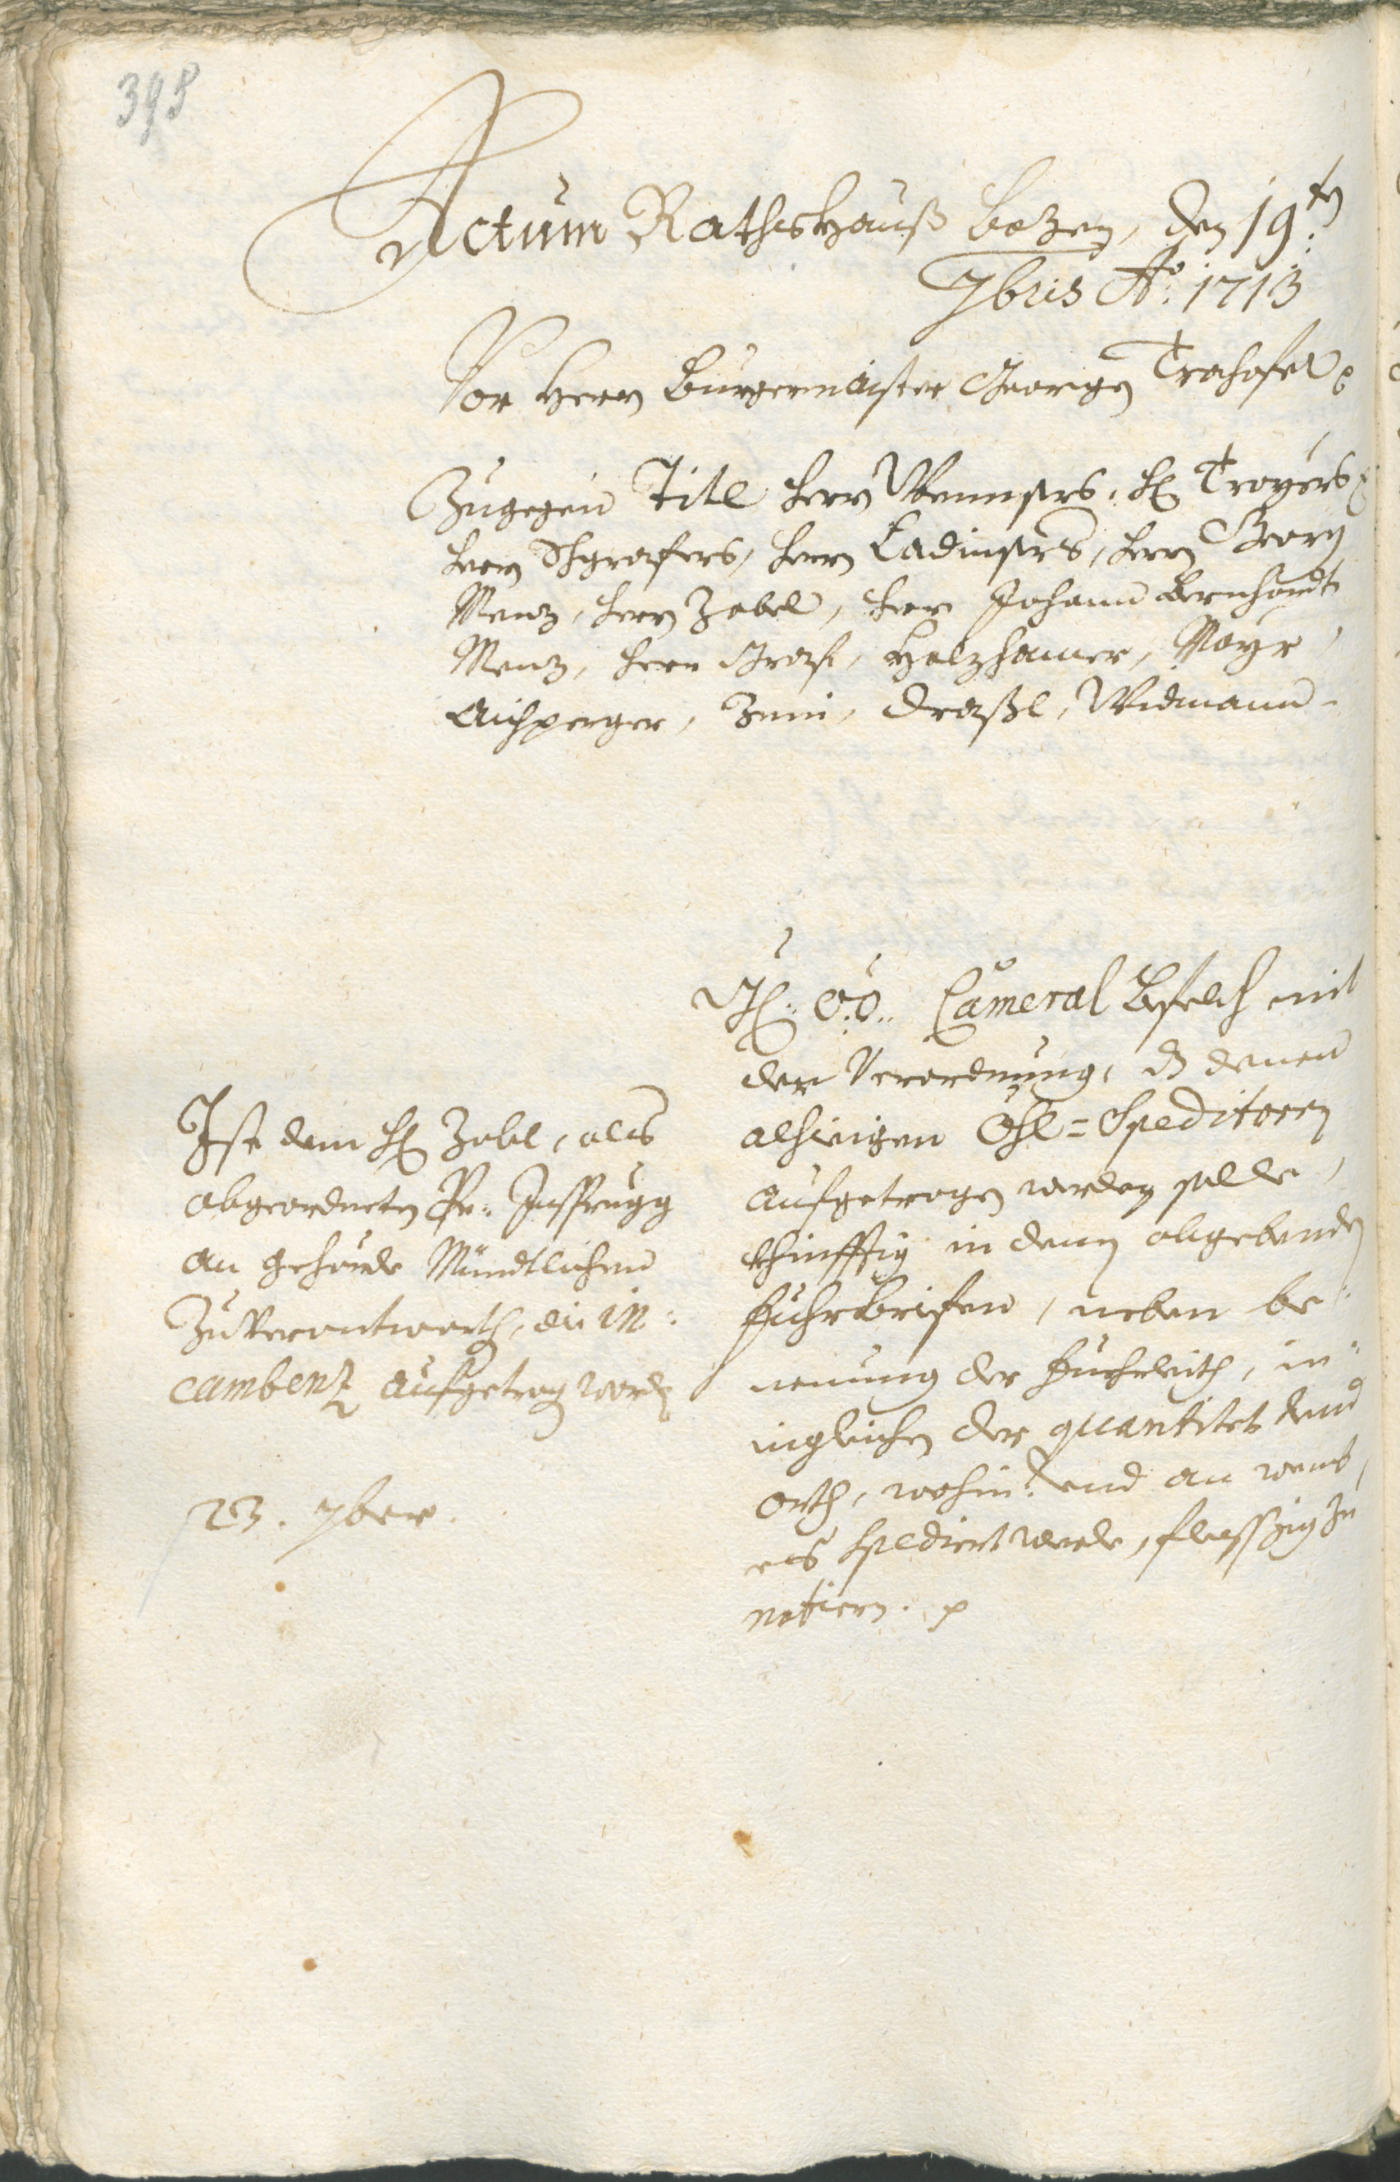 398
Actum Rathshauß Bozen, den 19.ten
7bris Ao. 1713
Vor Herrn Burgermaister Georgen Trahofer
Zugegen Titl Herrn Wenusers, H. Troyers
Herrn Schgrafers, Herrn Ladinsers, Herrn Georg
Menz, Herrn Zobel, Herr Johann Bernhardt
Menz, Herr Graf, Holzhamer, Mayr,
Aichperger, Zeni, Draßl, Widmann
O:Ö: Cameral Befelch mit
der Verordnung, dz denen
alhieigen Öhl=Speditorn
aufgetragen werden solle,
khünfftig in denen abgebenden
fuhrbriefen, neben be=
nenung der fuhrleith, in=
ingleichen der quantitet und
orth, wohin: und an weme
es spediert werde, fleissig zu
notiern.
Ist dem H. Zobl, als
abgeordneten Per Insprugg
an gehörde Mündtlichen
Zuverantworth, die in=
cambenz aufgetragen worden
23. 7ber.